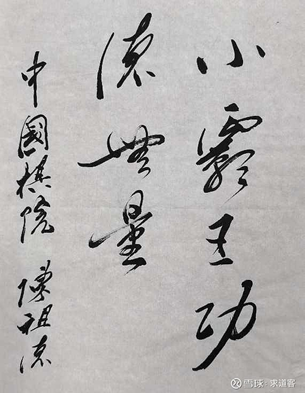 小霸王功
德无量
中國棋院 陳祖德
雪球：求道客